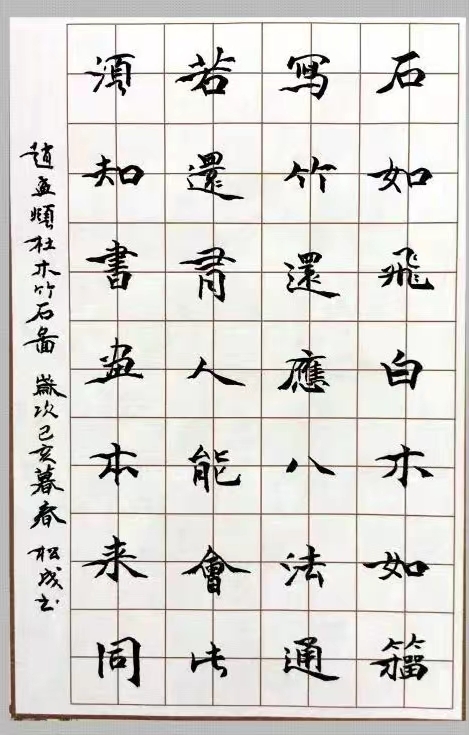 石如飛白木如籀
寫竹還應八法通
若還有人能會此
須知書畫本来同
趙孟頫杜木竹石圖 歲次己亥暮春 松成書